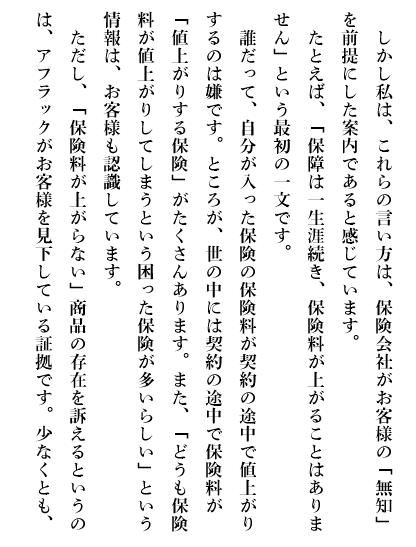 しかし私は、これらの言い方は、保険会社がお客様の「無知」
を前提にした案内であると感じています。
たとえば、「保障は一生涯続き、保険料が上がることはありま
せん」という最初の一文です。
誰だって、自分が入った保険の保険料が契約の途中で値上がり
するのは嫌です。ところが、世の中には契約の途中で保険料が
「値上がりする保険」がたくさんあります。また、「どうも保険
料が値上がりしてしまうという困った保険が多いらしい」という
情報は、お客様も認識しています。
ただし、「保険料が上がらない」商品の存在を訴えるというの
は、アフラックがお客様を見下している証拠です。少なくとも、